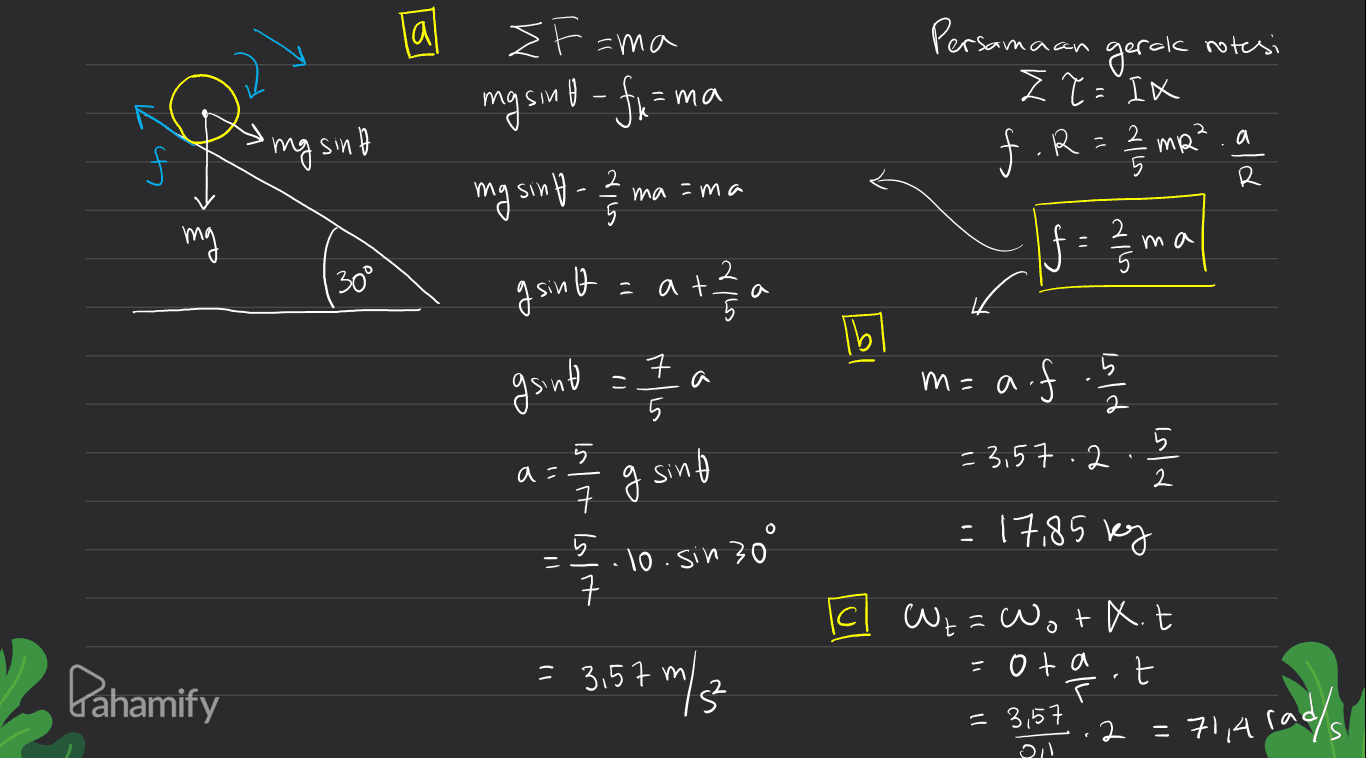 mg sin θ
f
mg
30°
a
ΣF = ma
mg sin θ - fk = ma
mg sin θ - 2/5 ma = ma
g sin θ = a + 2/5 a
g sin θ = 7/5 a
a = 5/7 g sin θ
= 5/7 . 10 . sin 30°
= 3,57 m/s²
Persamaan gerak rotasi
Στ = Iα
f . R = 2/5 mR² . a/R
f = 2/5 ma
b
m = a . f . 5/2
= 3,57 . 2 . 5/2
= 17,85 kg
c
ωt = ω₀ + α . t
= 0 + a/r . t
= 3,57/0,1 . 2 = 71,4 rad/s
Pahamify